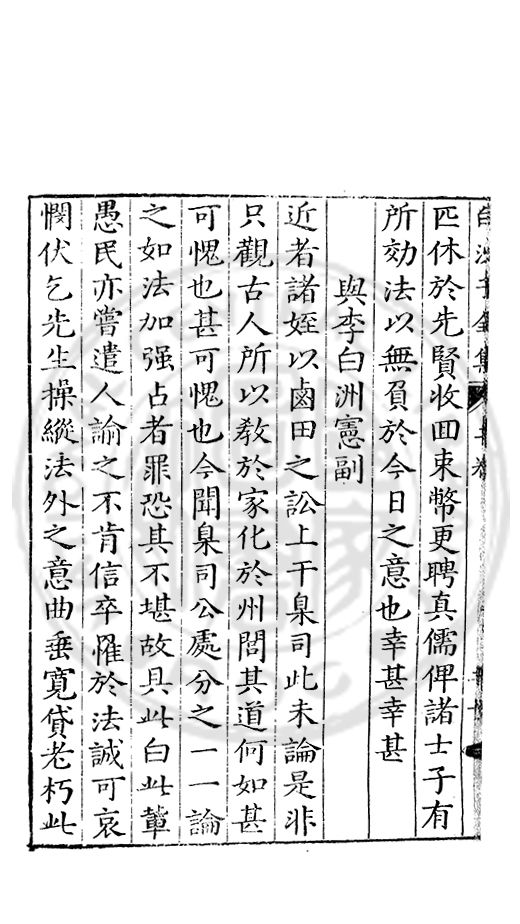 白沙子全集
匹休於先賢收回束幣更聘真儒俾諸士子有
所効法以無負於今日之意也幸甚幸甚
與李白洲憲副
近者諸姪以鹵田之訟上干臬司此未論是非
只觀古人所以教於家化於州閭其道何如甚
可愧也甚可愧也今聞臬司公處分之一一論
之如法加强占者罪恐其不堪故具此白此輩
愚民亦嘗遣人諭之不肯信卒罹於法誠可哀
憫伏乞先生操縱法外之意曲垂寬貸老朽此